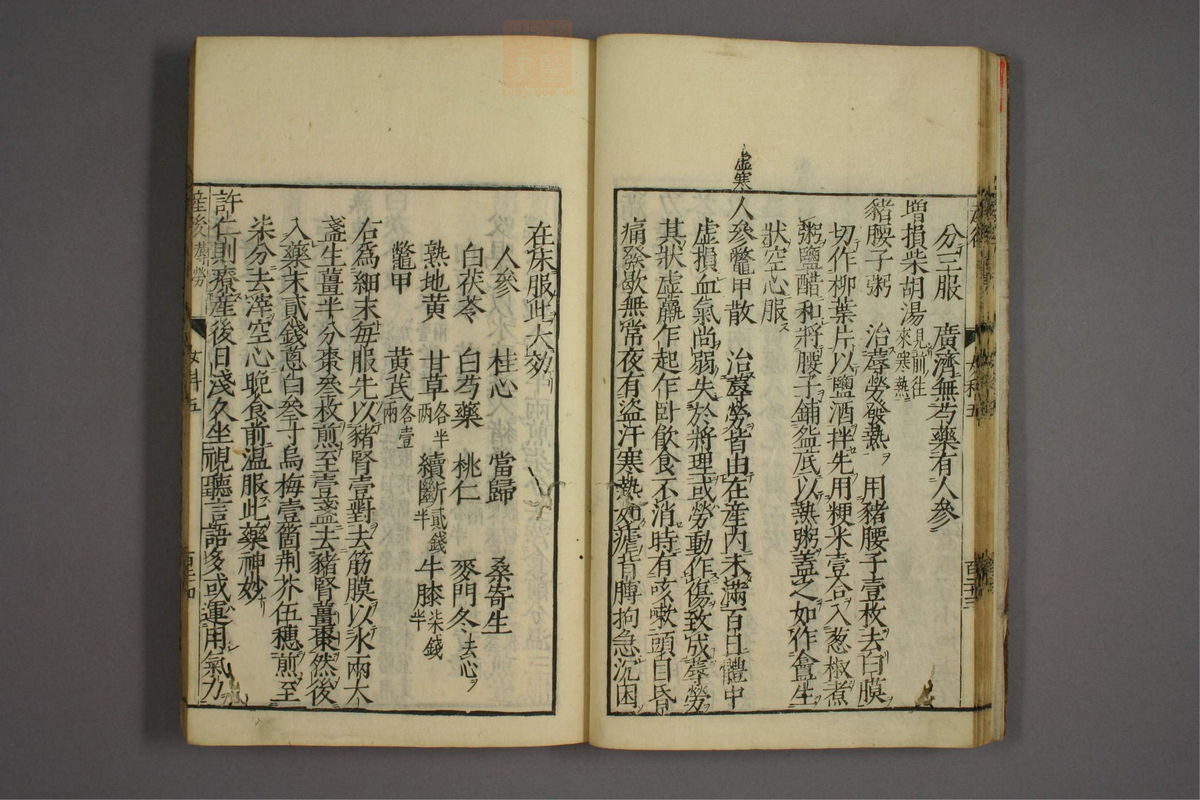 分三服　廣濟無芍藥有人參
增損柴胡湯見前往來寒熱
豬腰子粥　治蓐勞發熱　用豬腰子壹枚去白膜
切作柳葉片以鹽酒拌先用粳米壹合入葱椒煮
粥鹽醋和將腰子鋪盌底以熱粥蓋之如作盦生
狀空心服
虛寒
人參鼈甲散　治蓐勞皆由在産內未滿百日體中
虛損血氣尚弱失於將理或勞動作傷致成蓐勞
其狀虛羸乍起乍臥飲食不消時有咳嗽頭目昏
痛發歇無常夜有盜汗寒熱如瘧背膊拘急沉困
在床服此大効
人參　桂心　當歸　桑寄生
白茯苓　白芍藥　桃仁　麥門冬去心
熟地黄　甘草各半兩　續斷貳錢半　牛膝柒錢半
鼈甲　黄芪各壹兩
右爲細末每服先以豬腎壹對去筋膜以水兩大
盞生薑半分棗叁枚煎至壹盞去豬腎薑棗然後
入藥末貳錢葱白叁寸烏梅壹箇荆芥伍穗煎至
柒分去滓空心晚食前溫服此藥神妙
許仁則療産後日淺久坐視聽言語多或運用氣力
産後蓐勞　女科五　百三十四